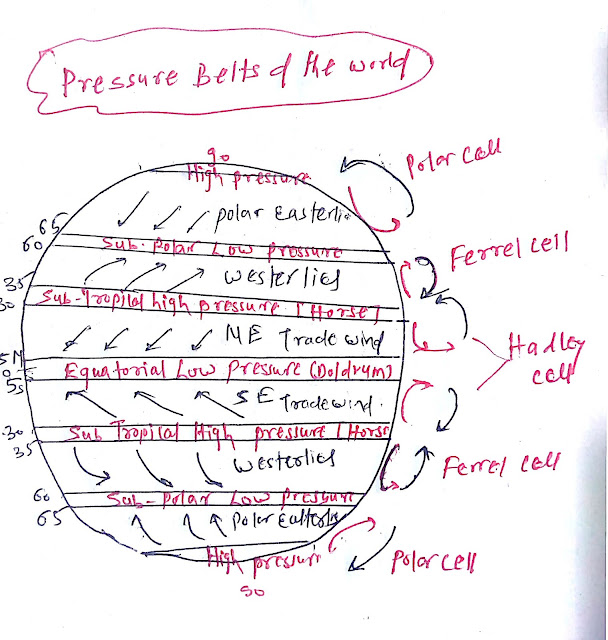 Pressure Belts of the world
90
High pressure
Polar cell
polar Easterlie
65
60
Sub-Polar Low pressure
Ferrel cell
westerlies
35
30
Sub-Tropical high pressure (Horse)
NE Trade wind
Hadley cell
5N
0
5S
Equatorial Low pressure (Doldrum)
SE Trade wind.
30
35
Sub Tropical High pressure (Horse
westerlies
Ferrel cell
60
65
Sub-Polar Low pressure
Polar Easterlie
High pressure
Polar cell
90